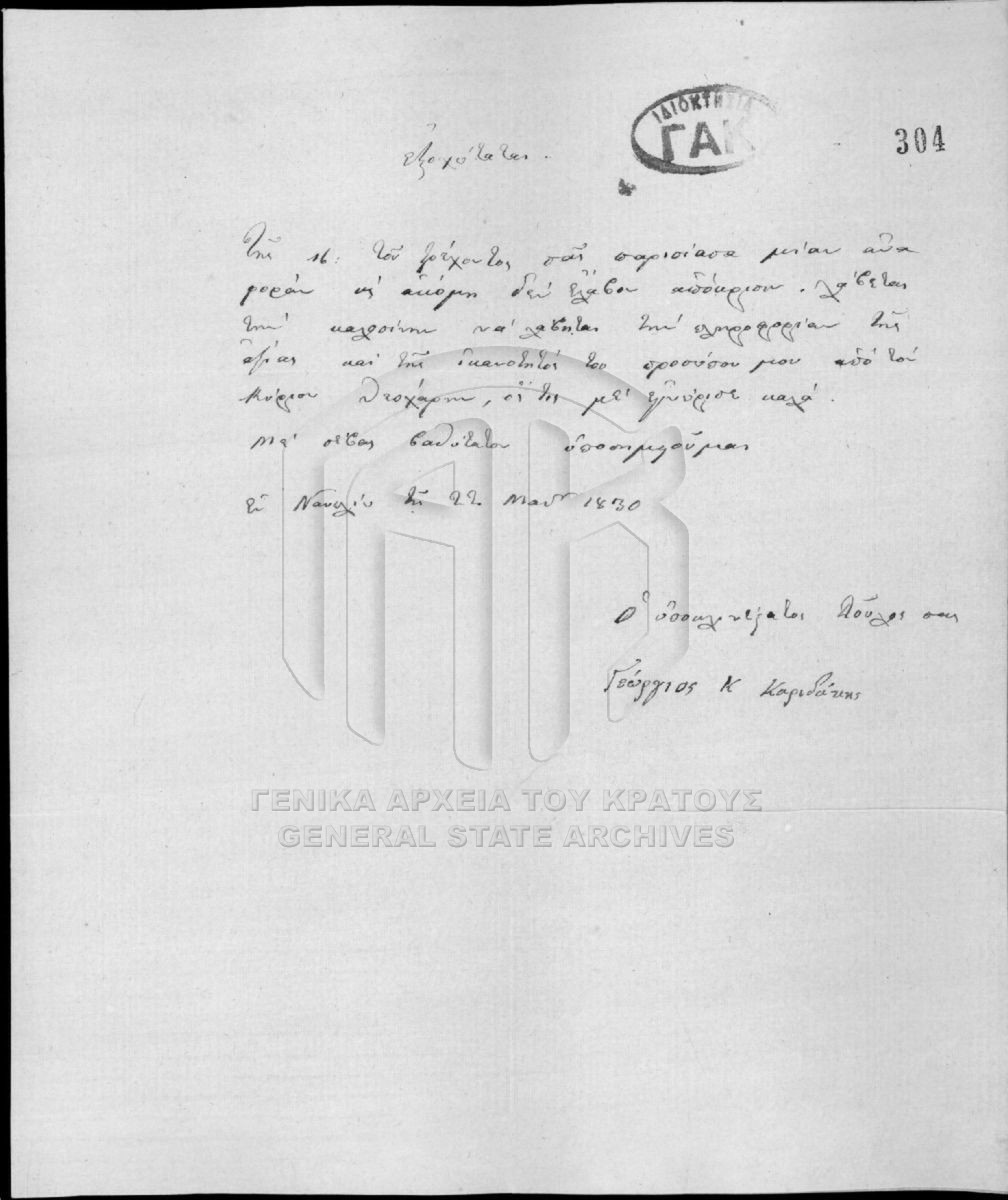 ΙΔΙΟΚΤΗΣΙΑ
ΓΑΚ
304
ἐξοχότατε.
Τῆς 16: τοῦ τρέχοντος σᾶς παρισίασα μίαν ἀνα
φορὰν κς ἀκόμη δὲν ἔλαβον ἀπόκρισιν. λάβεται
τὴν καλοσίνην νὰ λάβηται τὴν πληροφορίαν τῆς
ἀξίας καὶ τῆς ἱκανοτητός του προσόπου μου ἀπὸ τὸν
Κύριον Θεοχάρην, ὅς τις μὲ ἐγνόρισε καλά.
Μὲ σέβας βαθύτατον ὑποσημιοῦμαι
ἐν Ναυπλίῳ τῇ 22 Μαΐου 1830
Ὁ ὑποκλινέστατος δοῦλος σας
Γεώργιος Κ Καριδάκης
ΓΕΝΙΚΑ ΑΡΧΕΙΑ ΤΟΥ ΚΡΑΤΟΥΣ
GENERAL STATE ARCHIVES